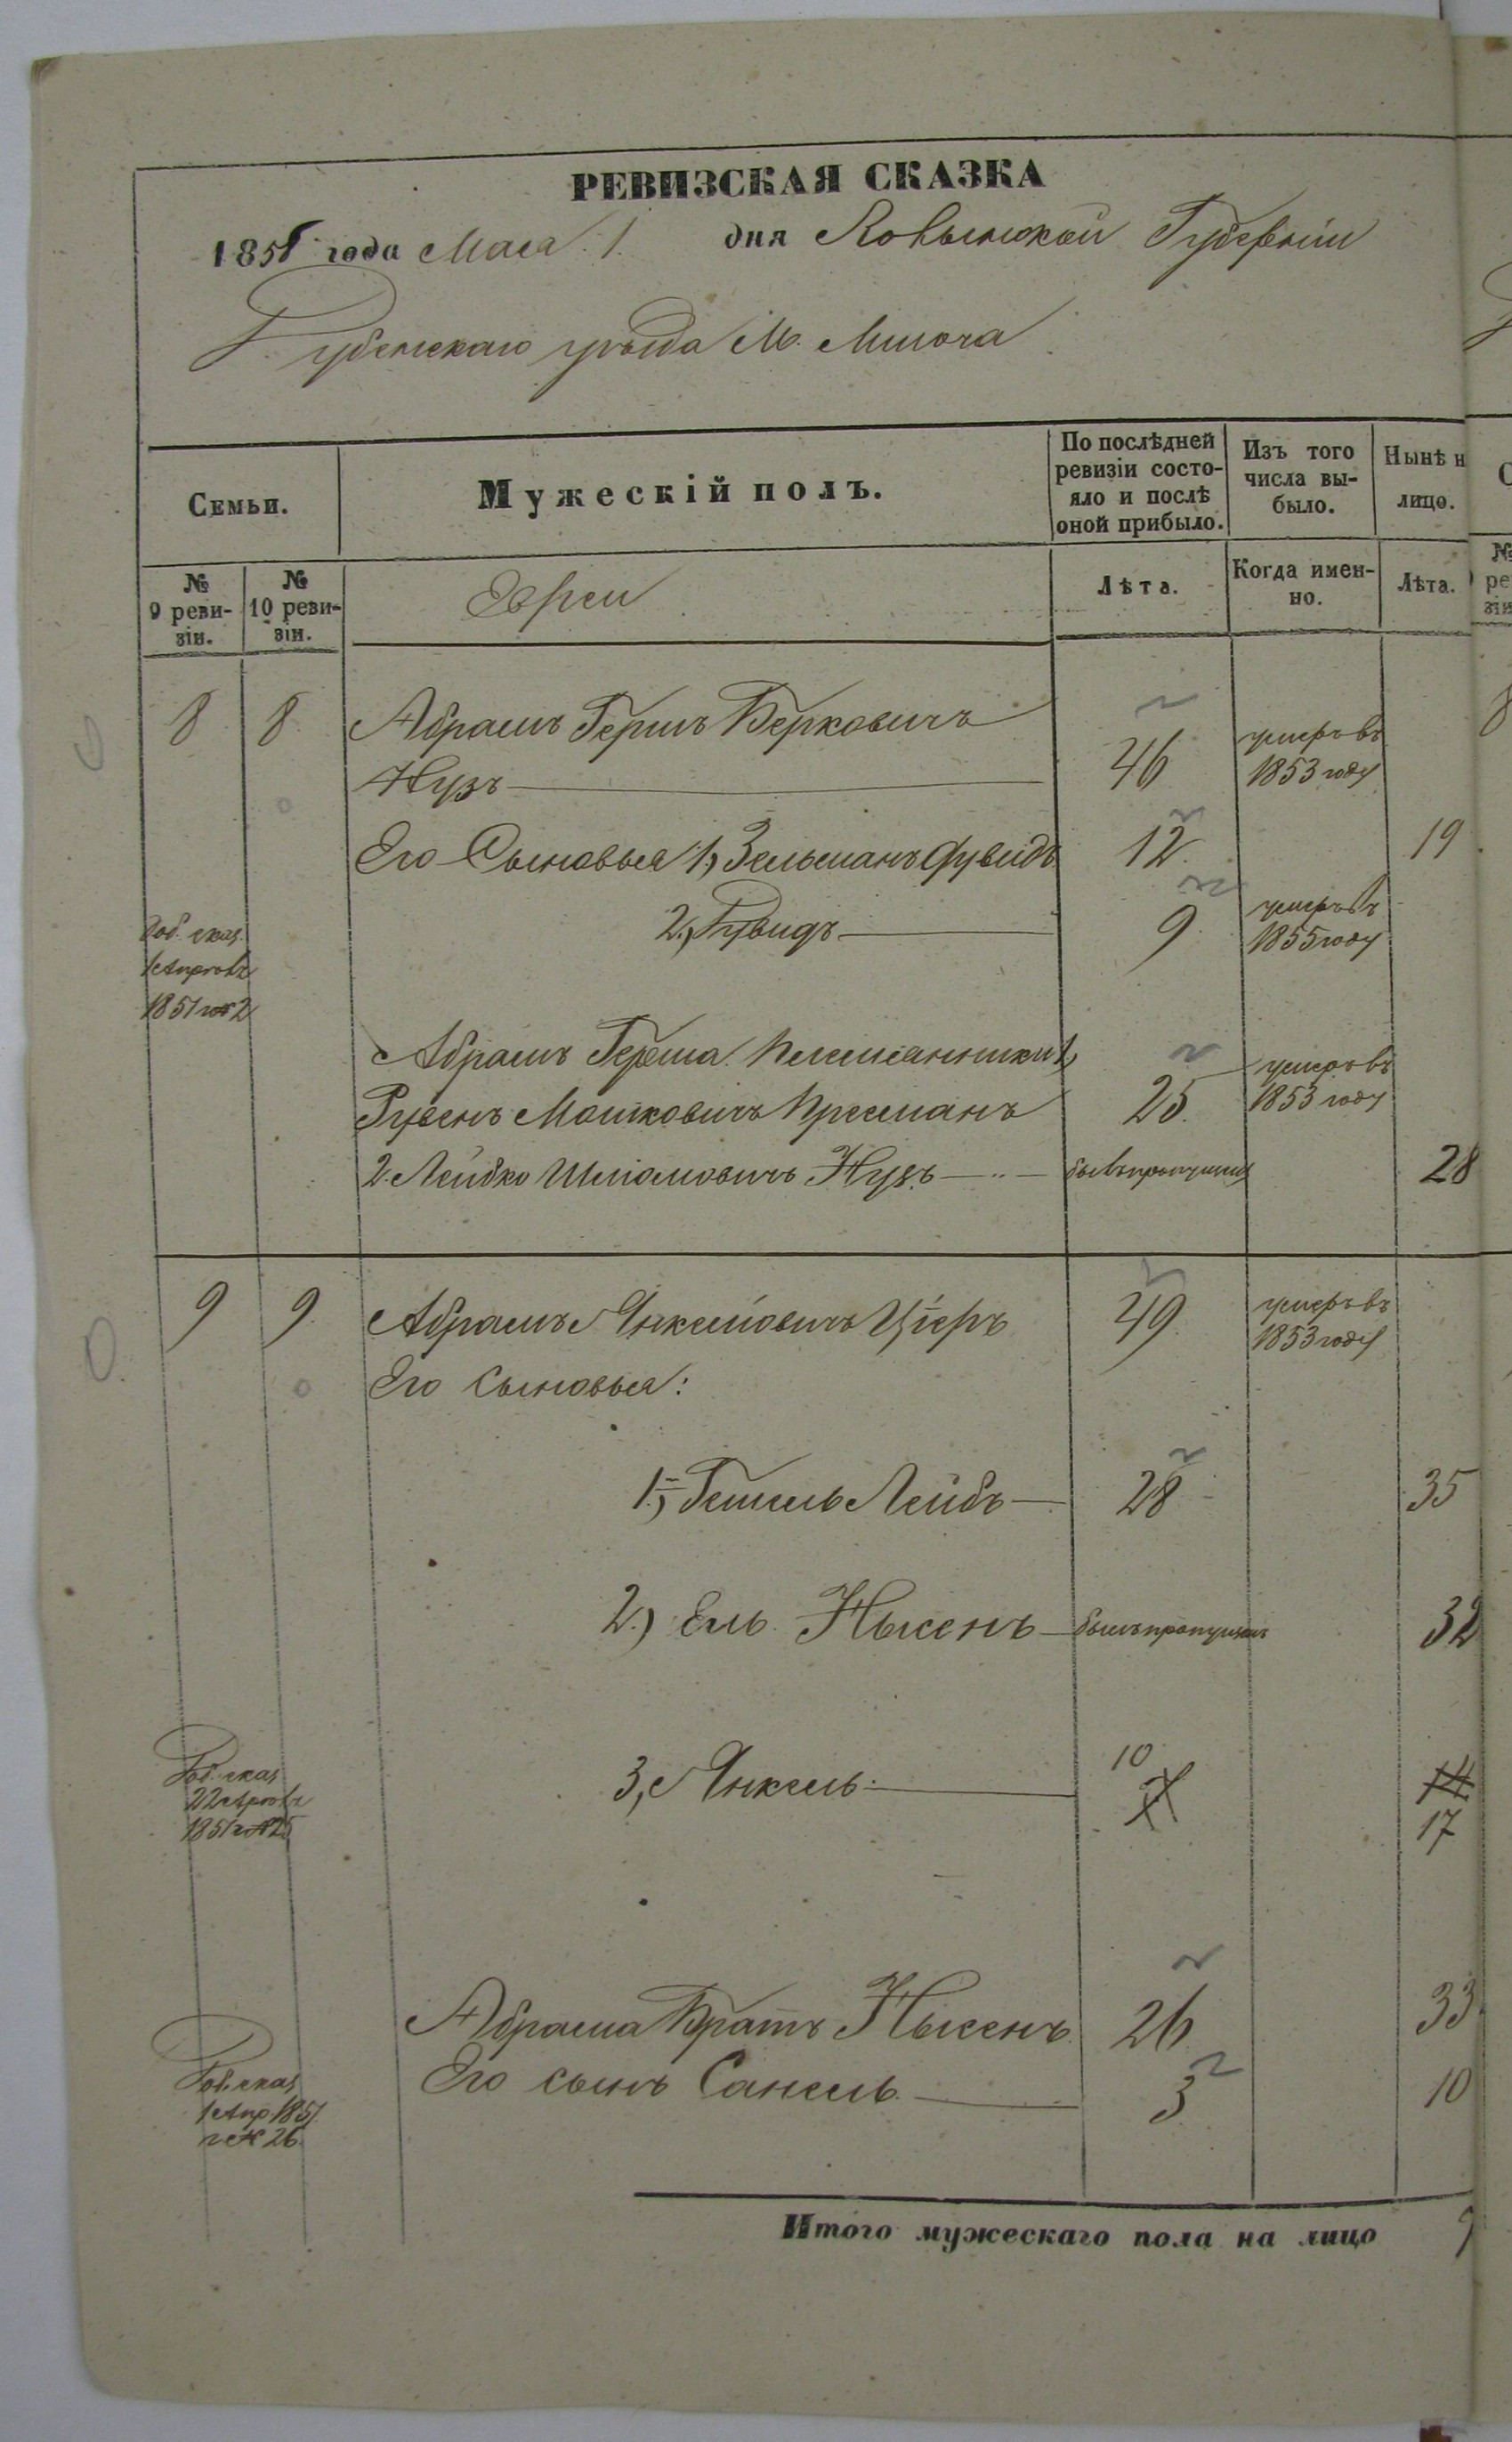 РЕВИЗСКАЯ СКАЗКА
1858 года Мая 1. дня Волынской Губерніи
Дубенскаго уѣзда М. Мизоча
Семьи.
Мужескій полъ.
По послѣдней ревизіи состояло и послѣ оной прибыло.
Изъ того числа выбыло.
Нынѣ н лицо.
№ 9 ревизіи.
№ 10 ревизіи.
Евреи
Лѣта.
Когда именно.
Лѣта.
8 8 Абрамъ Гершъ Берковичъ
Нузъ 46 умеръ въ 1853 году
Его Сыновья 1) Зельманъ 12. 19
2.) 9 умеръ въ 1855 году
Доб. сказ.
1 Апр
1851 г № 2
Абрамъ Герша племянники
Рувенъ Мошковичъ Пресманъ 25. умеръ въ 1853 году
2. Лейбко Шліомовичъ Нузъ былъ пропущенъ 28
9 9. Абрамъ Янкелiовичъ Цiеръ 49 умеръ въ 1853 году
Его Сыновья:
1.) Гешель Лейбъ 28 35
2.) Ель Нысенъ былъ пропущенъ 32
Доб. сказ.
22 Апр
1851 г № 25
3, Янкель 10 17
Абрама Братъ Нысенъ 26 33
Его сынъ Санель 3 10
Доб. сказ.
1 Апр 1851
г № 26
Итого мужескаго пола на лицо